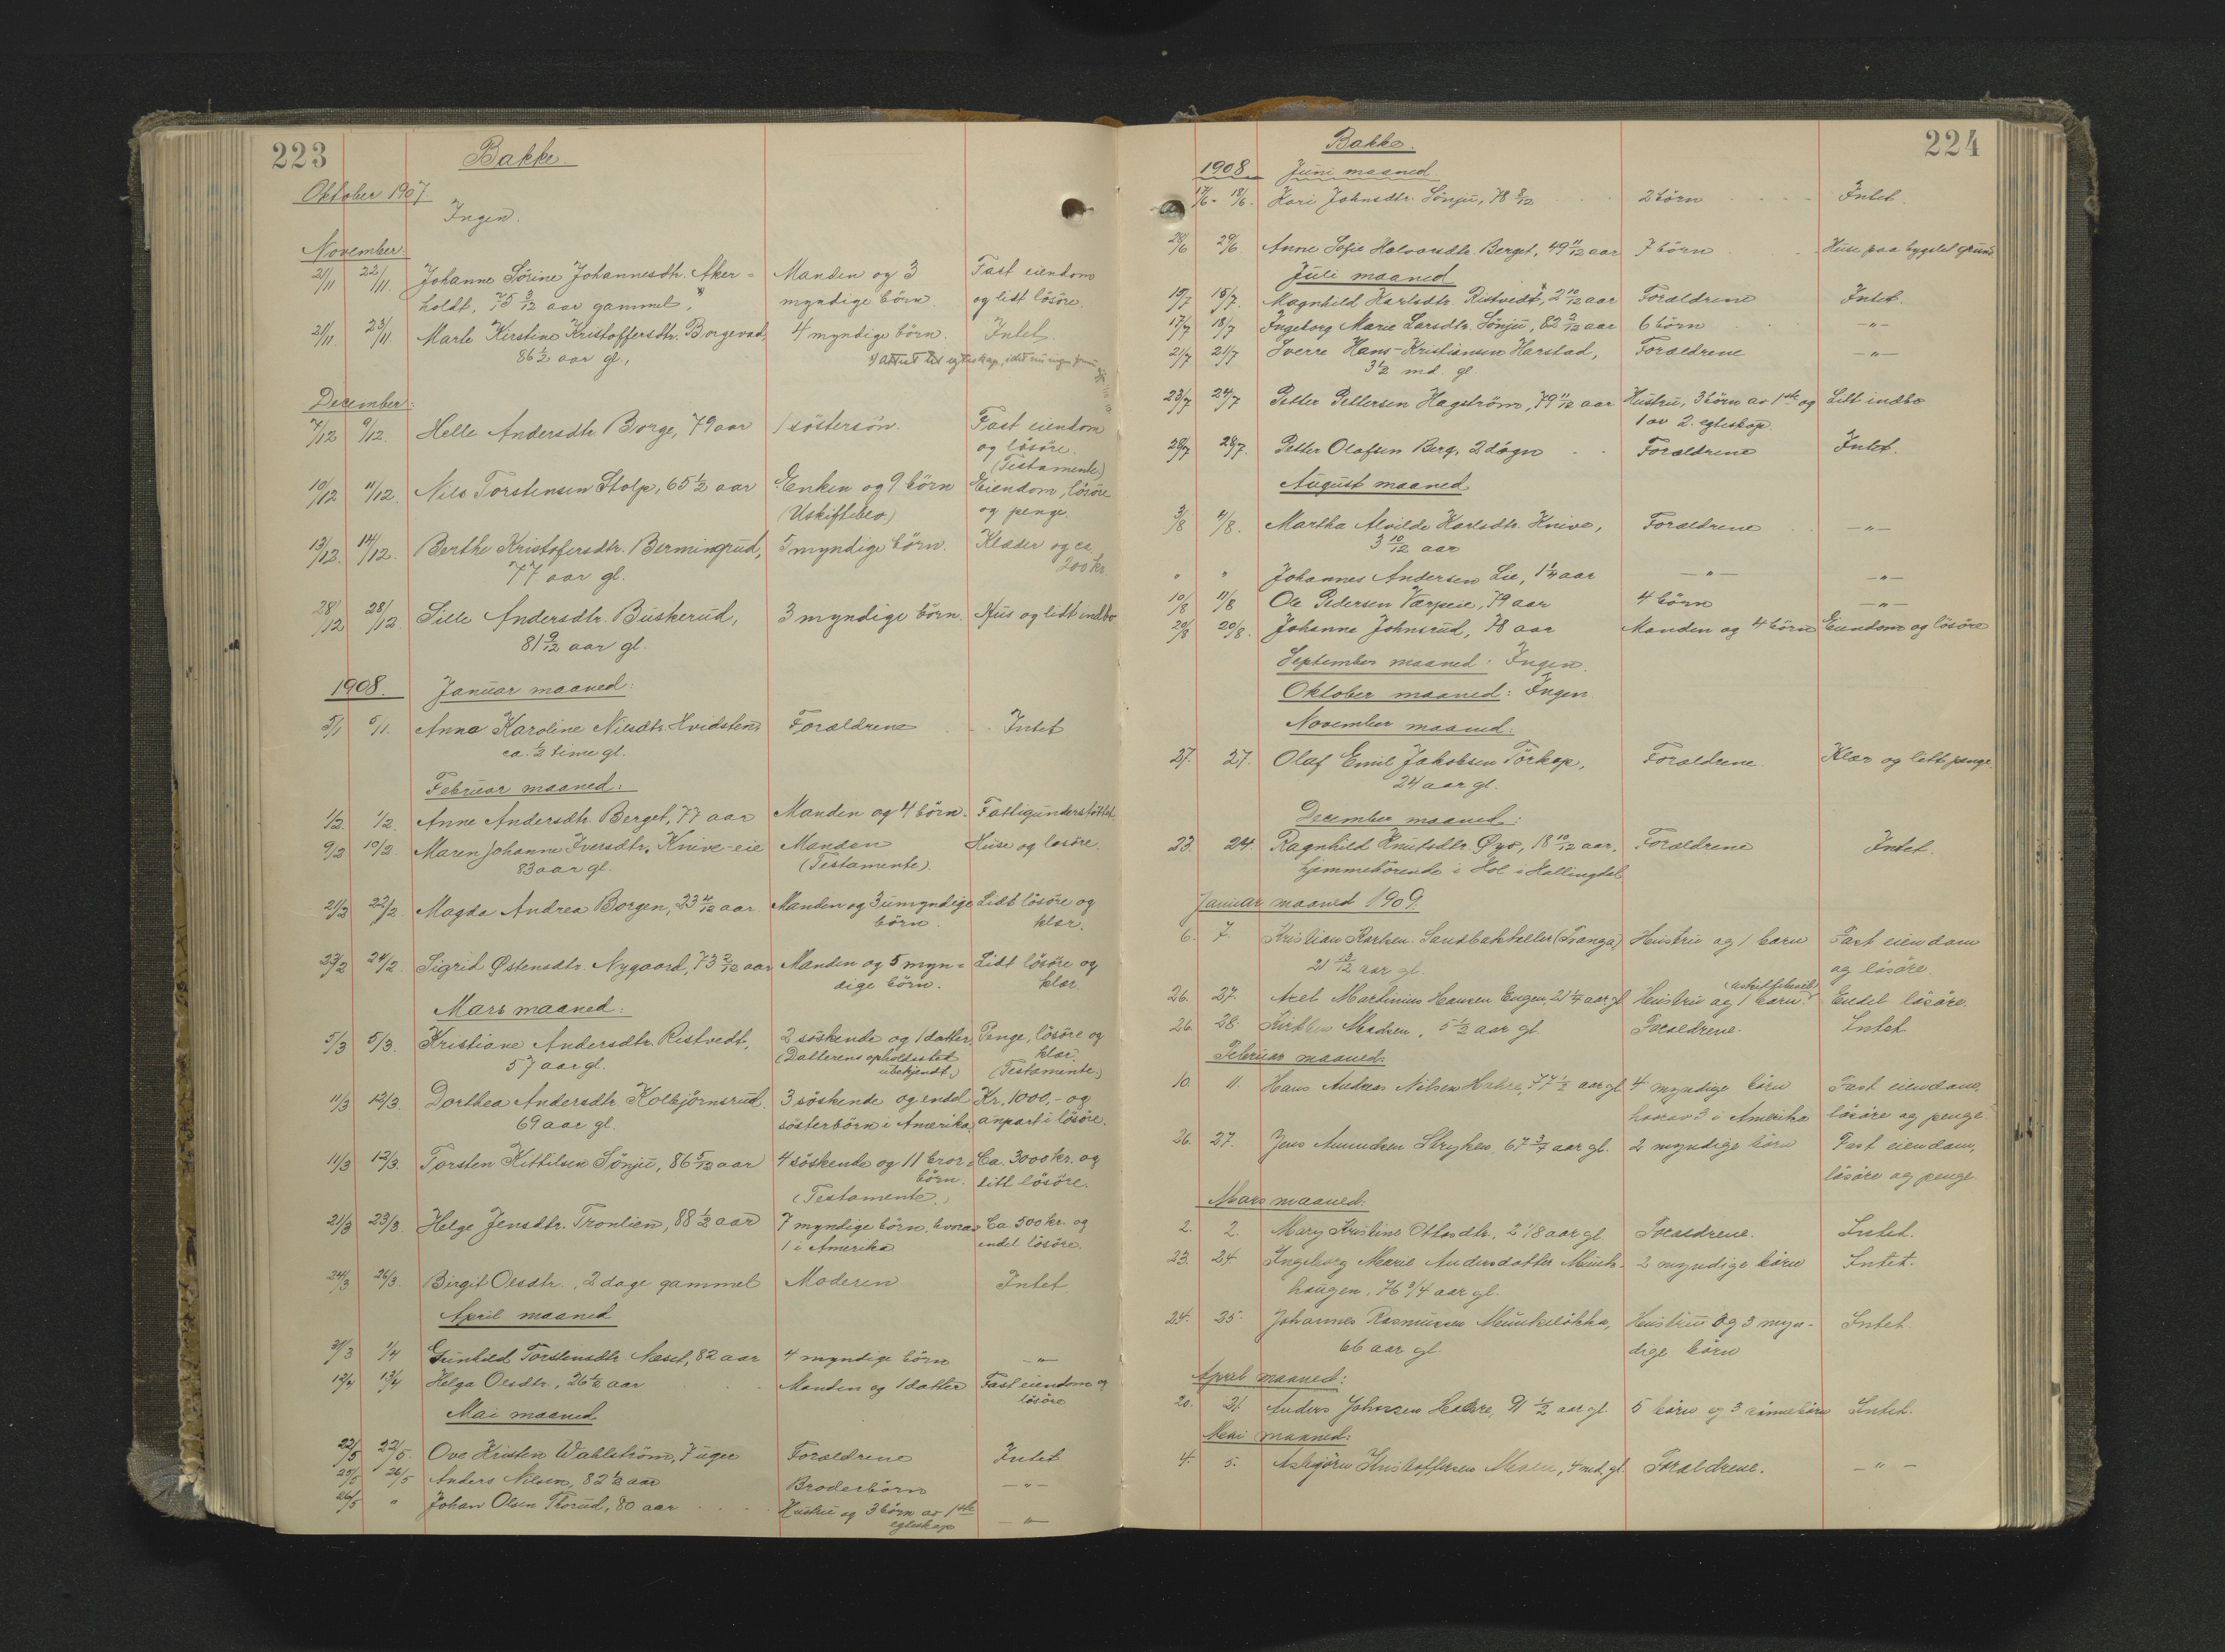 223
Bakke.
Oktober 1907.
Ingen.
November:
21/11 22/11. Johanne Sörine Johannesdtr. Aker- Manden og 3 Fast eiendom
holdt, 75 3/12 aar gammel, myndige börn. og lidt lösöre.
21/11. 23/11. Marte Kirstine Kristoffersdtr. Borgevad, 4 myndige börn. Intet.
86 1/2 aar gl.,
December:
7/12 9/12. Helle Andersdtr. Borge, 79 aar 1 söstersön. Fast eiendom
og lösöre.
(Testamente)
10/12 11/12. Nils Torstensen Stolp, 65 1/2 aar Enken og 9 börn Eiendom, lösöre
(Uskiftebev.) og penge.
13/12. 14/12. Berthe Kristofersdtr. Bermingrud, 5 myndige börn. Klæder og ca.
77 aar gl. 200 kr.
28/12 28/12. Sille Andersdtr. Buskerud, 3 myndige börn. Hus og lidt indbo
81 9/12 aar gl.
1908. Januar maaned:
5/1 6/1. Anna Karoline Nilsdtr. Hvidsten, Forældrene Intet
ca. 1/2 time gl.
Februar maaned:
1/2. 1/2. Anne Andersdtr. Berget, 77 aar Manden og 4 börn. Fattigunderstöttet
9/2 10/2. Maren Johanne Iversdtr. Knive-eie Manden Huse og lösöre.
83 aar gl. (Testamente).
21/2 22/2. Magda Andrea Borgen, 23 4/12 aar. Manden og 3 umyndige Lidt lösöre og
börn. klær.
23/2 24/2. Sigrid Østensdtr. Nygaard, 73 2/12 aar Manden og 5 myn- Lidt lösöre og
dige börn. klær.
Mars maaned:
5/3 5/3. Kristiane Andersdtr. Ristvedt, 2 söskende og 1 datter, Penge, lösöre og
57 aar gl. (Datterens opholdssted klær.
ubekjendt.) (Testamente.)
11/3 12/3. Dorthea Andersdtr Kolbjörnsrud. 3 söskende og endel Kr. 1000,- og
69 aar gl. sösterbörn i Amerika, anpart i lösöre.
11/3 12/3. Torsten Kittilsen Sönju, 86 5/12 aar 4 söskende og 11 bror- Ca. 3000 kr. og
börn. litt lösöre.
(Testamente.)
21/3 23/3. Helge Jensdtr. Tronlien, 88 1/2 aar 7 myndige börn, hvorav Ca. 500 kr. og
1 i Amerika endel lösöre.
24/3 26/3. Birgit Olsdtr., 2 dage gammel Moderen Intet
April maaned
31/3 1/4 Gunhild Torstensdtr. Næset, 82 aar 4 myndige börn —"—
12/4 13/4 Helga Olsdtr., 26 1/2 aar Manden og 1 datter Fast eiendom og
lösöre
Mai maaned
22/5 22/5. Ove Kristen Wahlström, 7 uger Forældrene Intet
25/5 26/5 Anders Nilsen, 82 1/2 aar Broderbörn —"—
26/5 " Johan Olsen Thorud, 80 aar Hustru og 3 börn av 1ste
egteskap —"—
224
Bakke.
1908 Juni maaned
17/6- 18/6. Kari Johnsdtr. Sönju, 78 8/12 2 börn Intet.
28/6 29/6 Anne Sofie Halvorsdtr. Berget, 49 11/12 aar 7 börn Huse paa bygslet grund
Juli maaned
15/7 15/7. Magnhild Karlsdtr. Ristvedt, 2 10/12 aar Forældrene Intet.
17/7 18/7 Ingeborg Marie Larsdtr. Sönju, 82 2/12 aar 6 börn —"—
21/7 21/7 Sverre Hans-Kristiansen Harstad, Forældrene —"—
3 1/2 md. gl
23/7 24/7 Petter Pettersen Hagström, 79 11/12 aar Hustru, 3 börn av 1ste og Litt indbo
1 av 2. egteskap.
28/7 29/7. Petter Olafsen Berg, 2 dögn Forældrene Intet.
August maaned
3/8 4/8. Martha Alvilde Karlsdtr. Knive, Forældrene —"—
3 10/12 aar
" " Johannes Andersen Lie, 1 1/2 aar —"— —"—
10/8 11/8 Ole Pedersen Værpeie, 79 aar 4 börn —"—
20/8 20/8. Johanne Johnsrud, 78 aar Manden og 4 börn Eiendom og lösöre
September maaned: Ingen.
Oktober maaned: Ingen.
November maaned:
27. 27. Olaf Emil Jakobsen Törkop, Forældrene. Klær og litt penge.
24 aar gl.
December maaned:
23. 24. Ragnhild Knutsdtr Øyo, 18 10/12 aar, Forældrene Intet.
hjemmehörende i Hol i Hallingdal
Januar maaned 1909.
6. 7. Kristian Karlsen Sandbakkeller (Tranga) Hustru og 1 barn Fast eiendom
og lösöre.
26. 27. Axel Martinius Hansen Engen, 21 1/4 aar gl Hustru og 1 barn. Endel lösöre.
26. 28. Kirsten Madsen, 5 1/2 aar gl. Forældrene. Intet
Februar maaned:
10. 11. Hans Andreas Nilsen Hakre, 77 1/2 aar gl 4 myndige börn Fast eiendom,
hvorav 3 i Amerika lösöre og penge.
26. 27. Jens Amundsen Stryken, 67 3/4 aar gl. 2 myndige börn Fast eiendom,
lösöre og penge
Mars maaned:
2. 2. Mary Kristine Ottosdtr., 2 1/8 aar gl Forældrene. Intet.
23. 24. Ingeborg Marie Andersdatter Munk- 2 myndige börn Intet.
haugen, 76 3/4 aar gl.
24. 25. Johannes Rasmussen Munkelökka, Hustru og 3 myn- Intet
66 aar gl. dige börn
April maaned:
20. 21. Anders Johnsen Hakre, 91 1/2 aar gl. 5 börn og 3 Intet.
Mai maaned:
4. 5. Asbjörn Kristoffersen Moen, 4 md. gl. Forældrene. —"—